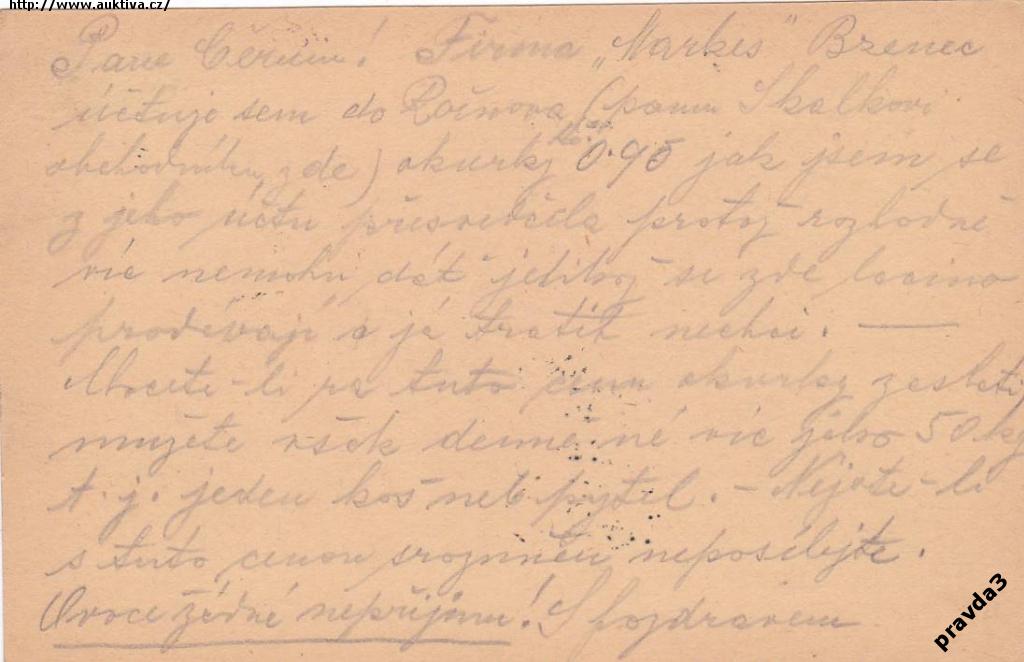 http://www.auktiva.cz/
Pane Černín! Firma „Markes" Bzenec
účtuje sem do Rožnova (panu Skalkovi
obchodníku zde) okurky 0.95 jak jsem se
z jeho účtu přesvědčila protož rozhodně
víc nemohu dát jelikož se zde lacino
prodávají a já tratit nechci. —
Chcete-li za tuto cenu okurky zaslati
můžete však denně né víc jeho 50 kg
t. j. jeden koš neb pytel. – Nejste-li
s tuto cenou srozuměn neposílejte.
Ovoce žádné nepřijmu! S pozdravem
pravda3